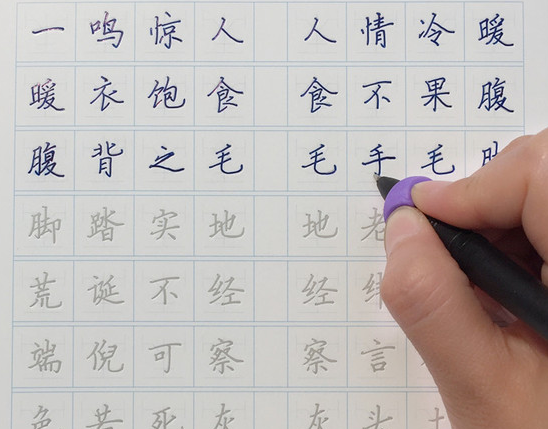 一鸣惊人 人情冷暖
暖衣饱食 食不果腹
腹背之毛 毛手毛
脚踏实地 地
荒诞不经 经
端倪可察 察言
死灰 灰头